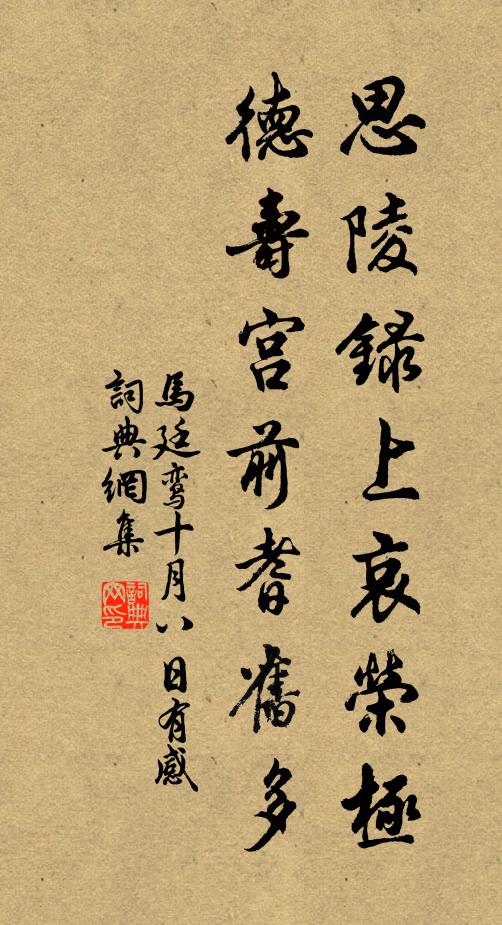 思陵錄上哀榮極
德壽宮前耆舊多
馬廷鸞十月八日有感
詞典網集
詞典
网印